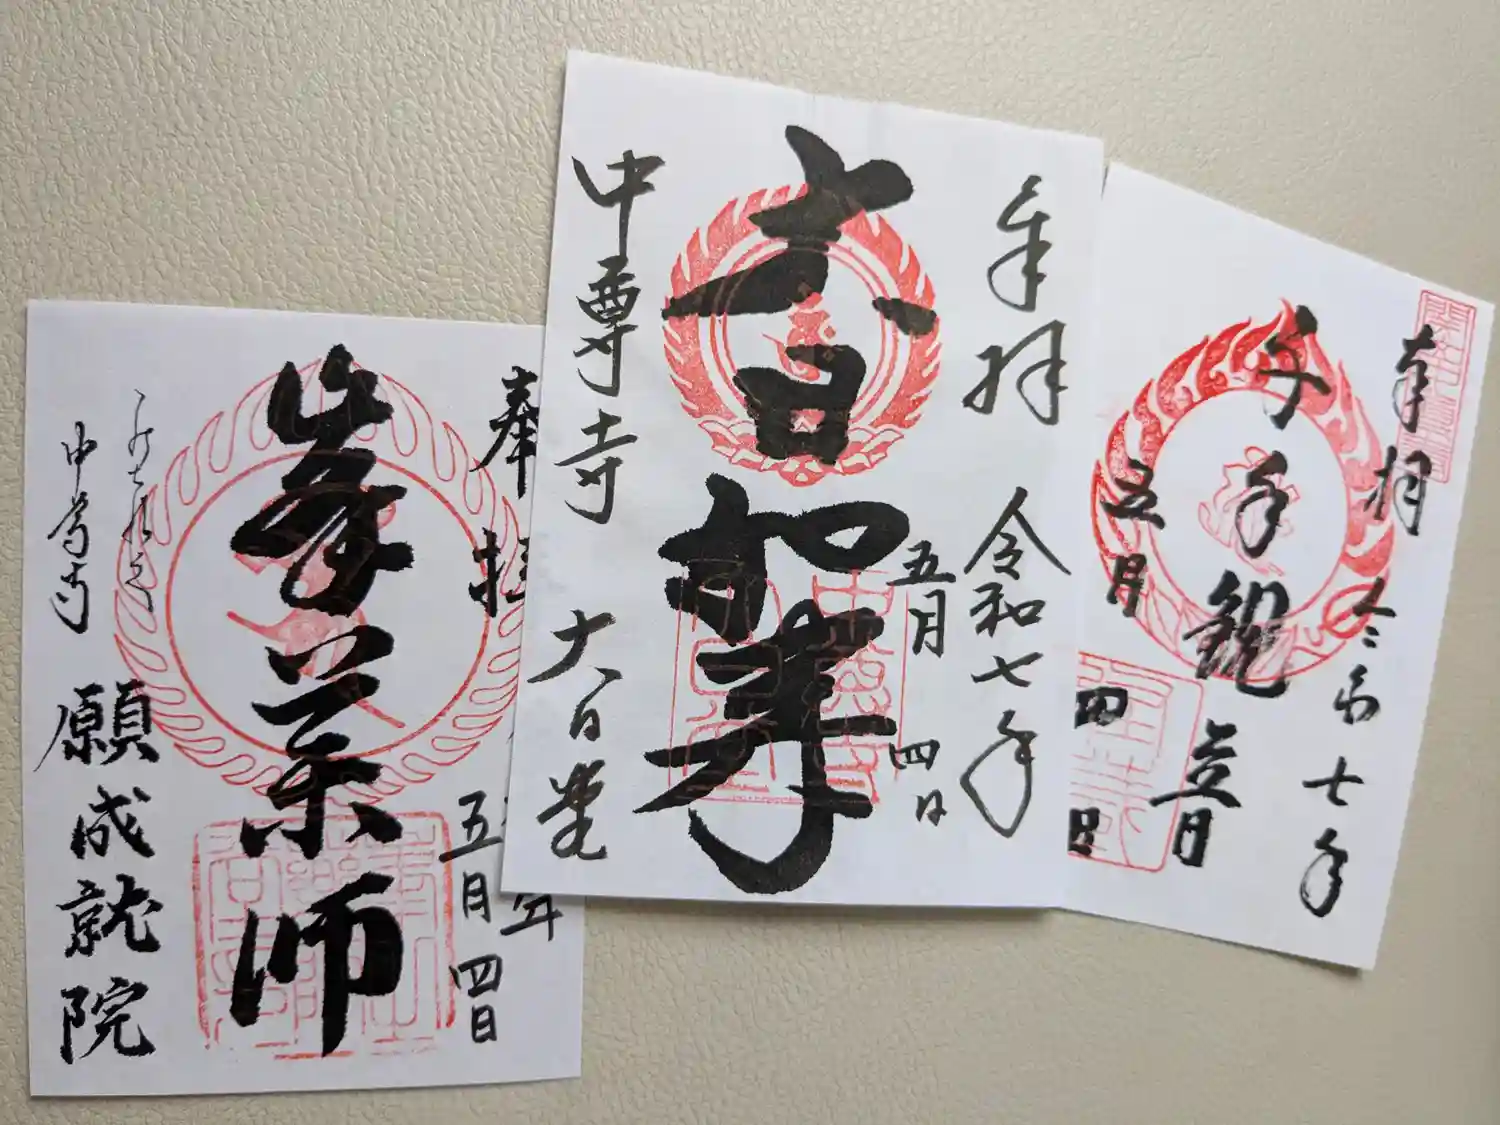 奉
年
五月四日
峯薬師
中尊寺
願成就院
奉拝
令和七年
五月四日
大日如来
中尊寺
大日堂
奉拝
令和七年
千手観音
五月四日